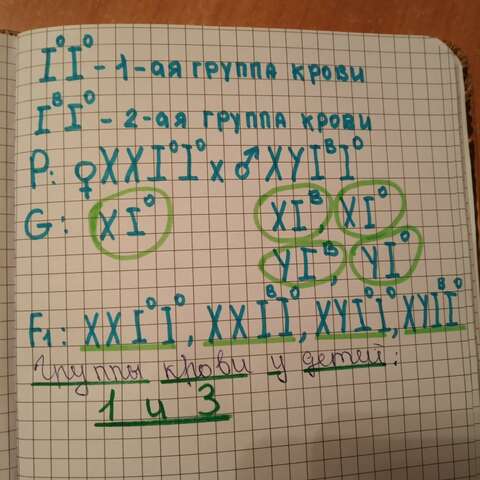 I⁰I⁰ - 1-ая группа крови
IᴮI⁰ - 2-ая группа крови
P: ♀XXI⁰I⁰ x ♂XYIᴮI⁰
G: XI⁰ XIᴮ, XI⁰
YIᴮ, YI⁰
F₁: XXI⁰I⁰, XXIᴮI⁰, XYI⁰I⁰, XYIᴮI⁰
Группы крови у детей:
1 и 3